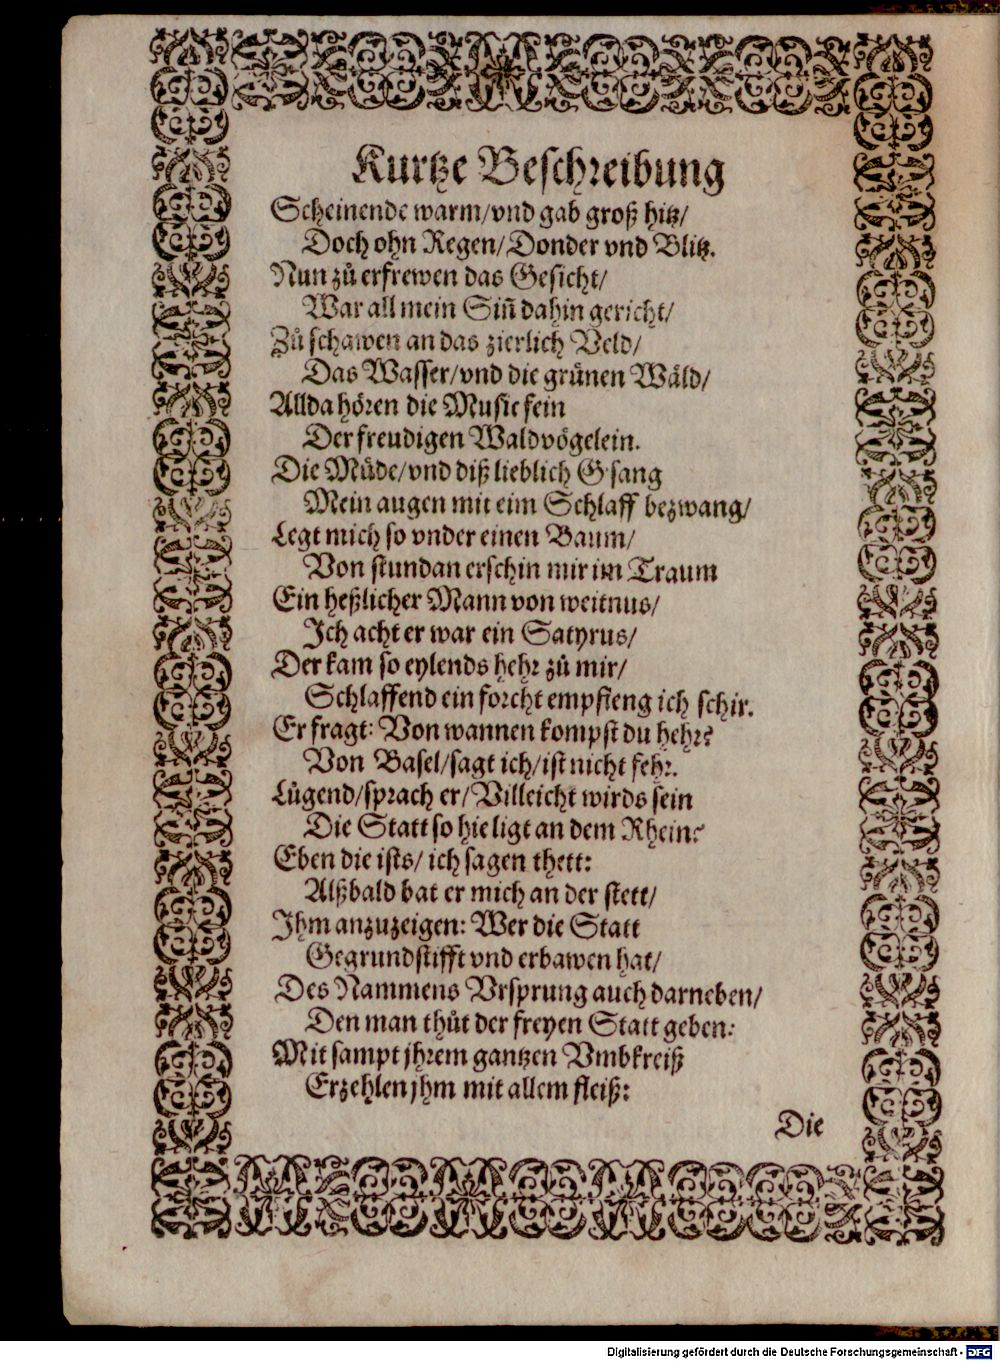 Kurtze Beschreibung
Scheinende warm/vnd gab groß hitz/
Doch ohn Regen/Donder vnd Blitz.
Nun zů erfrewen das Gesicht/
War all mein Siñ dahin gericht/
Zů schawen an das zierlich Veld/
Das Wasser/vnd die grünen Wäld/
Allda hören die Music fein
Der freudigen Waldvögelein.
Die Müde/vnd diß lieblich Gsang
Mein augen mit eim Schlaff bezwang/
Legt mich so vnder einen Baum/
Von stundan erschin mir im Traum
Ein heßlicher Mann von weitnus/
Ich acht er war ein Satyrus/
Der kam so eylends hehr zů mir/
Schlaffend ein forcht empfieng ich schir.
Er fragt: Von wannen kompst du hehr?
Von Basel/sagt ich/ist nicht fehr.
Lügend/sprach er/Villeicht wirds sein
Die Statt so hie ligt an dem Rhein?
Eben die ists/ich sagen thett:
Alßbald bat er mich an der stett/
Ihm anzuzeigen: Wer die Statt
Gegrundstifft vnd erbawen hat/
Des Nammens Vrsprung auch darneben/
Den man thůt der freyen Statt geben:
Mit sampt jhrem gantzen Vmbkreiß
Erzehlen jhm mit allem fleiß:
Die
Digitalisierung gefördert durch die Deutsche Forschungsgemeinschaft - DFG